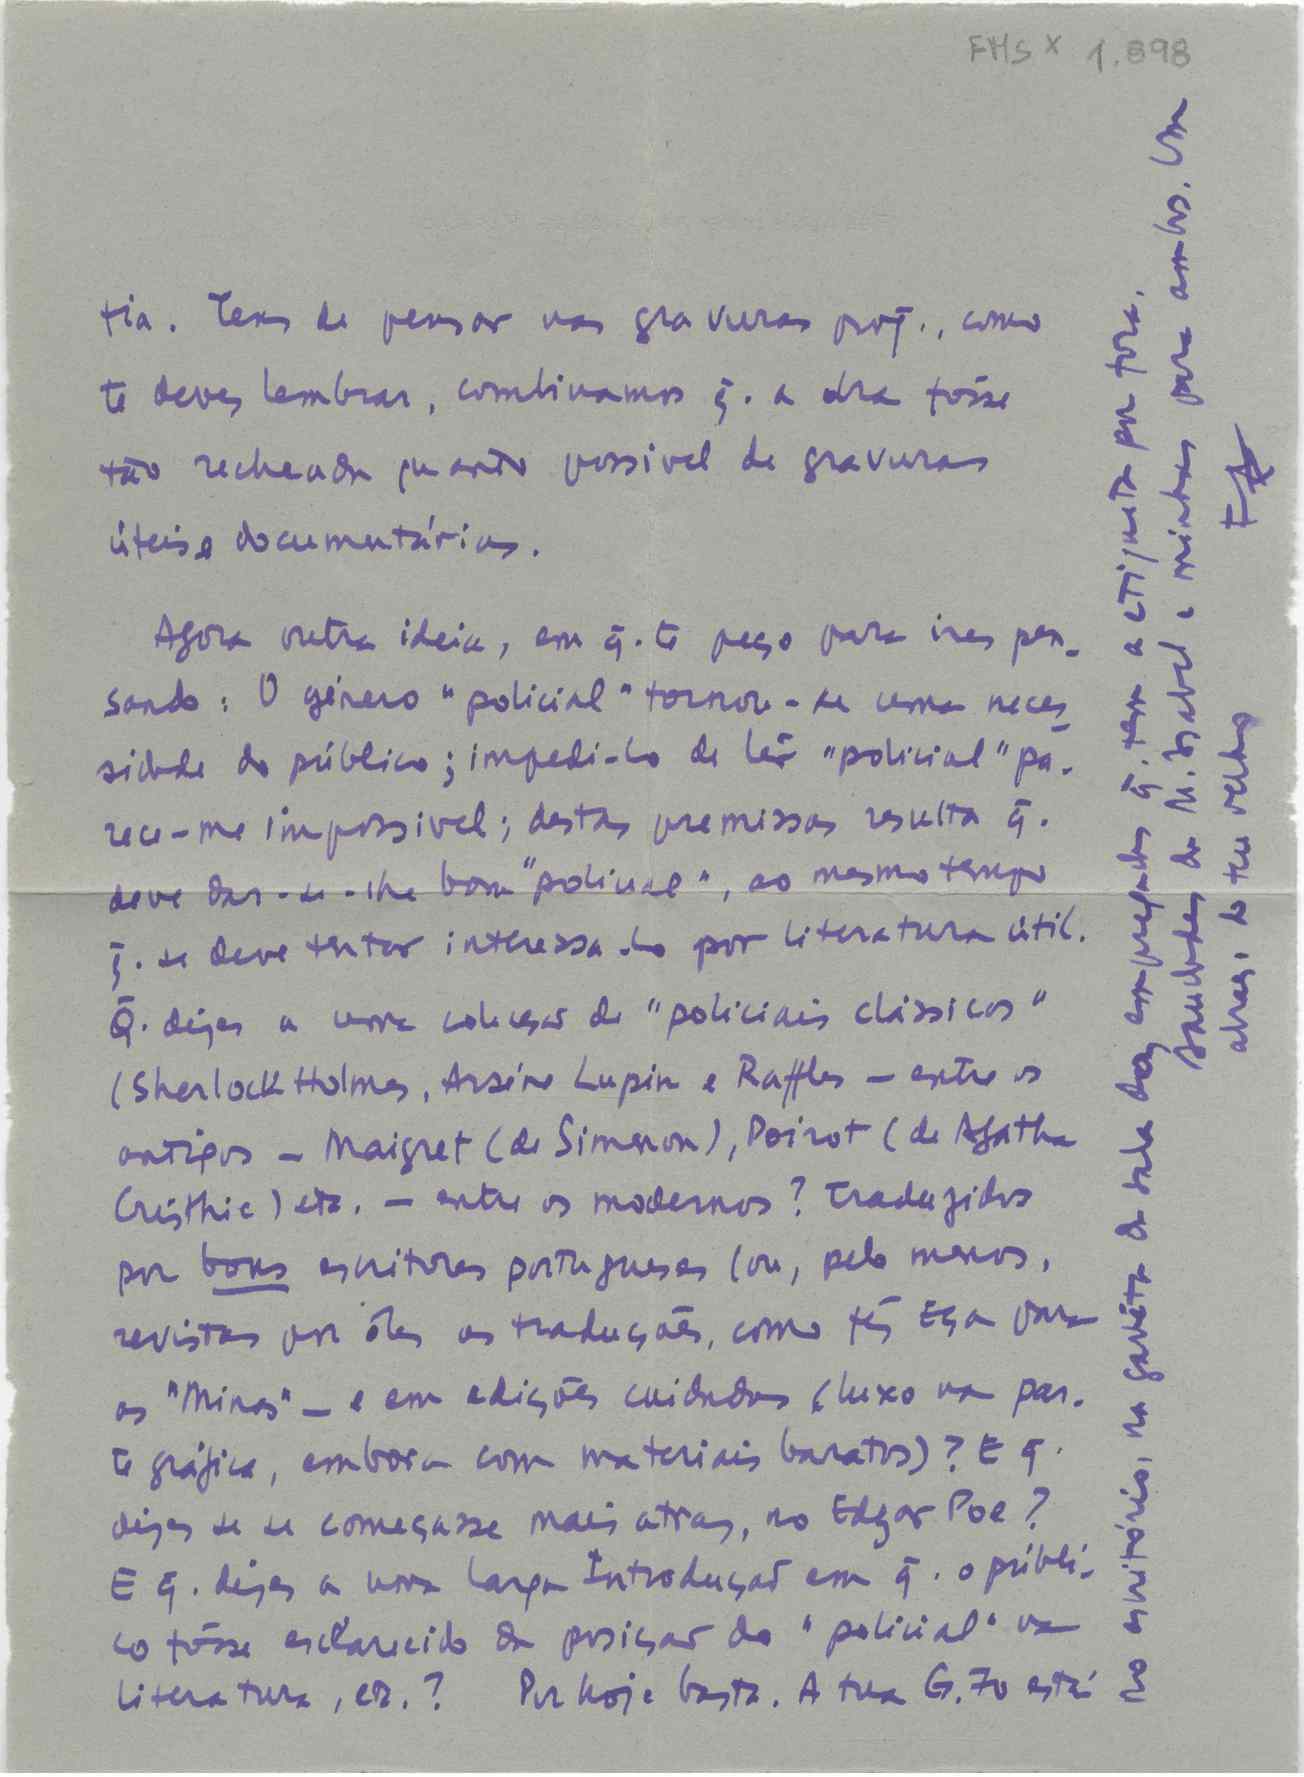 FMS X 1.898
tia. Tens de pensar nas gravuras porq̄., como
te deves lembrar, combinamos q̄. a obra fôsse
tão recheada quanto possivel de gravuras
úteis e documentárias.
Agora outra ideia, em q̄. te peço para ires pen-
sando: O género "policial" tornou-se uma neces-
sidade do público; impedi-lo de lêr "policial" pa-
rece-me impossivel; destas premissas resulta q̄.
deve dar-se-lhe bom "policial", ao mesmo tempo
q̄. se deve tentar interessa-lo por literatura útil.
Q̄. dizes a uma colecção de "policiais clássicos"
(Sherlock Holmes, Arséne Lupin e Raffles — entre os
antigos — Maigret (de Simenon), Poirot (de Agatha
Cristhie) etc. — entre os modernos? Traduzidos
por bons escritores portugueses (ou, pelo menos,
revistas por êles as traduções, como fês Eça para
as "Minas" — e em edições cuidadas (luxo na par-
te gráfica, embora com materiais baratos)? E q̄.
dizes se se começasse mais atras, no Edgar Poe?
E q̄. dizes a uma larga Introdução em q̄. o públi-
co fôsse esclarecido da posição do "policial" na
literatura, etc.? Por hoje basta. A tua G.70 está
no escritório, na gavêta da sala dos empregados q̄. tem a etiqueta por fora.
Saudades da M. Isabel e minhas para ambos. Um
abraço do teu velho